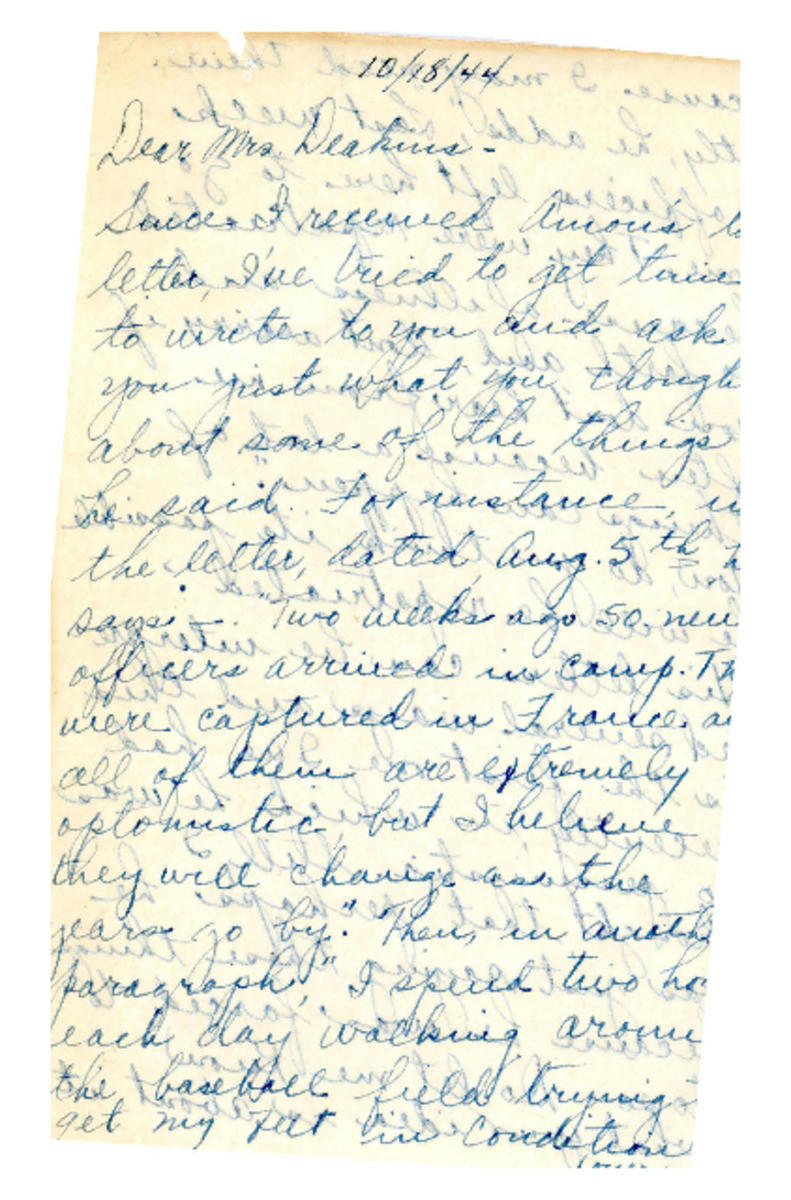 10/18/44
Dear Mrs. Deakins -
Since I received Amon's
letter, I've tried to get time
to write to you and ask
you just what you though
about some of the things
he said. For instance, in
the letter, dated Aug. 5th h
says - "Two weeks ago 50 new
officers arrived in camp. Th
were captured in France a
all of them are extremely
optomistic, but I believe
they will change as the
years go by." Then, in anoth
paragraph, "I spend two ho
each day walking aroun
the baseball field trying
get my feet in condition